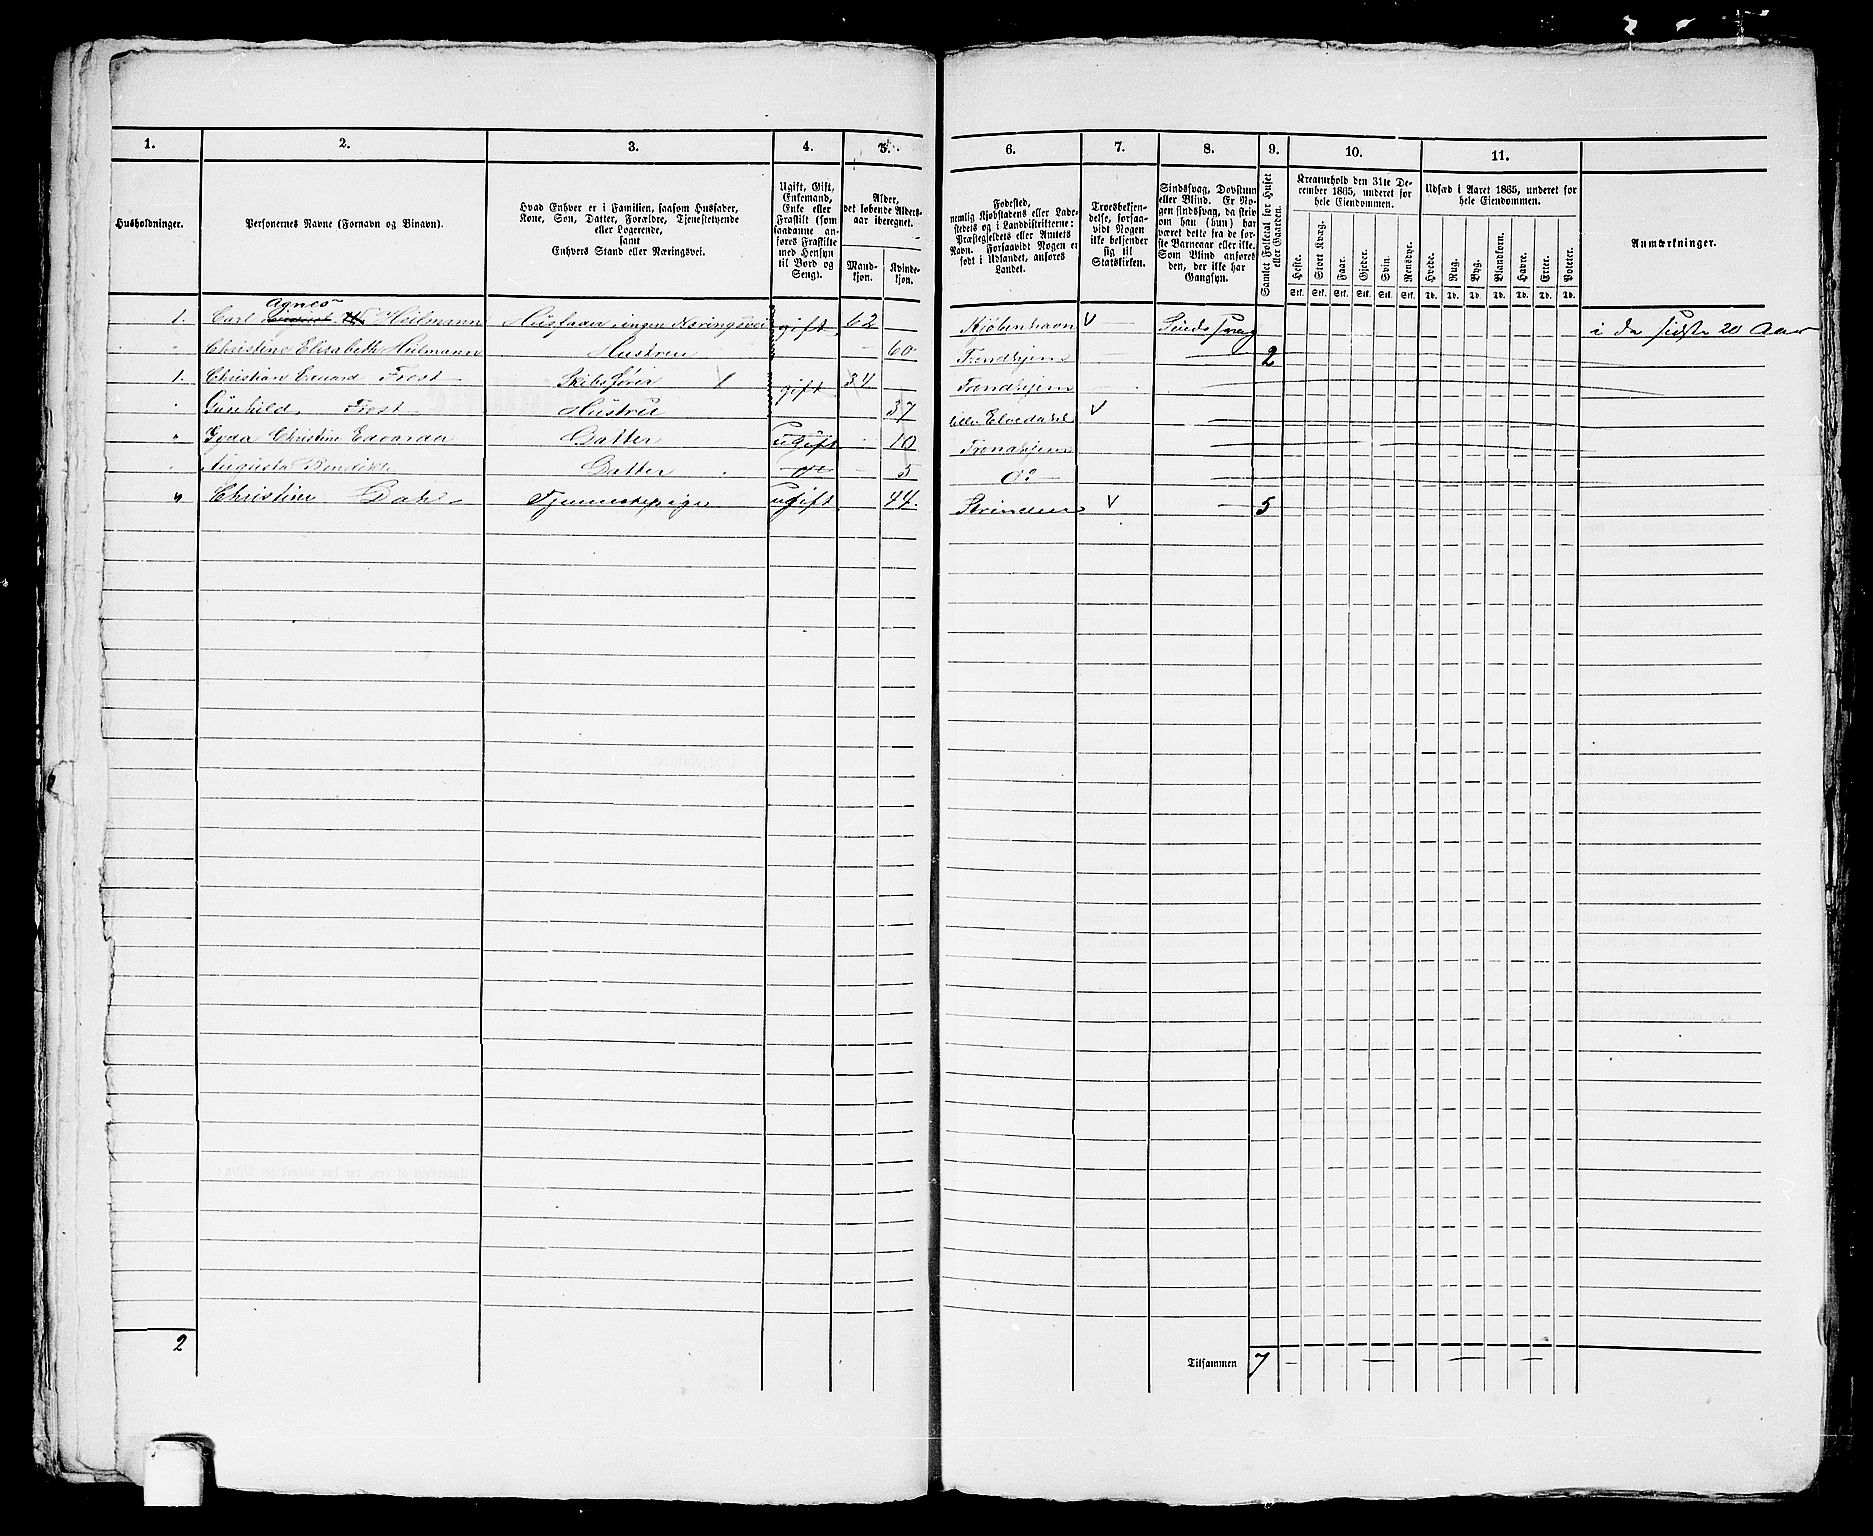 1. 2. 3. 4. 5. 6. 7. 8. 9. 10. 11.
Husholdninger.
Personernes Navne (Fornavn og Binavn).
Hvad Enhver er i Familien, saasom Husfader,
Kone, Søn, Datter, Forældre, Tjenestetyende
eller Logerende,
samt
Enhvers Stand eller Næringsvei.
Ugift, Gift,
Enkemand,
Enke eller
Fraskilt (som
saadanne an-
føres Fraskilte
med Hensyn
til Bord og
Seng).
Alder,
det løbende Alders-
aar iberegnet.
Mand-
kjøn.
Kvinde-
kjøn.
Fødested,
nemlig Kjøbstadens eller Lade-
stedets og i Landdistrikterne:
Præstegjeldets eller Amtets
Navn. Forsaavidt Nogen er
født i Udlandet, anføres
Landet.
Troesbekjen-
delse, forsaa-
vidt Nogen
ikke bekjender
sig til
Statskirken.
Sindssvag, Døvstum
eller Blind. Er No-
gen sindssvag, da skriv
om han (hun) har
været dette fra de før-
ste Barneaar eller ikke.
Som Blind ansøres
den, der ikke har
Gangsyn.
Samlet Folketal for Huset
eller Gaarden.
Kreaturhold den 31te De-
cember 1865, underet for
hele Eiendommen.
Heste. Stort Kvæg. Faar. Gjeder. Svin. Rensdyr.
Stk. Stk. Stk. Stk. Stk. Stk.
Udsæd i Aaret 1865, underet for
hele Eiendommen.
Hvede. Rug. Byg. Blandkorn. Havre. Erter. Poteter.
Td. Td. Td. Td. Td. Td. Td.
Anmærkninger.
Agnes
1. Carl Heilmann Husfader, ingen Næringsvei gift 62 Kjøbenhavn V Sindssvag i de sidste 20 Aar
" Christine Elisabeth Heilmann Hustru 60 Trondhjem 2
1. Christian Eduard Frost Skibsfører 1 gift 34 Trondhjem
" Gunhild Frost Hustru 37 lille Elvedalen V
" Gyda Christine Edvarda Datter ugift 10 Trondhjem
" Augusta Bendikte Datter do 5 do
" Christine Dahl Tjenestepige ugift 44. Strinden V 5
2 Tilsammen 7 — — — —